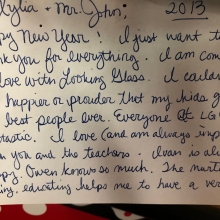 kylia + Mr. John, 2013
py New Year! I just want t
nk you for everything. I am com
love with Looking Glass. I could
happier or prouder that my kids g
best people ever. Everyone @ LG
tastic. I love (and am always imp
you and the teachers. Ivan is al
py. Owen knows so much. The
ing, educating helps me to have a ve